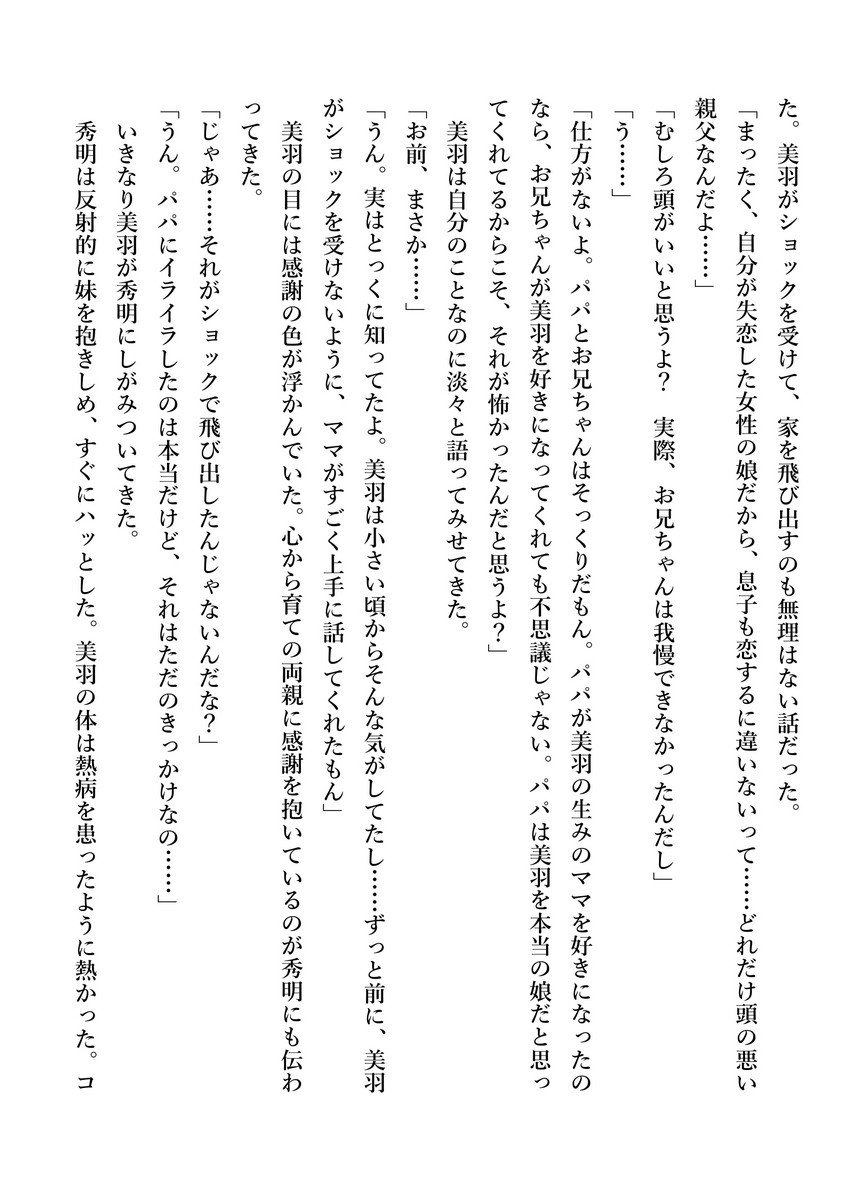 た。美羽がショックを受けて、家を飛び出すのも無理はない話だった。
「まったく、自分が失恋した女性の娘だから、息子も恋するに違いないって……どれだけ頭の悪い
親父なんだよ……」
「むしろ頭がいいと思うよ?　実際、お兄ちゃんは我慢できなかったんだし」
「う……」
「仕方がないよ。パパとお兄ちゃんはそっくりだもん。パパが美羽の生みのママを好きになったの
なら、お兄ちゃんが美羽を好きになってくれても不思議じゃない。パパは美羽を本当の娘だと思っ
てくれてるからこそ、それが怖かったんだと思うよ?」
美羽は自分のことなのに淡々と語ってみせてきた。
「お前、まさか……」
「うん。実はとっくに知ってたよ。美羽は小さい頃からそんな気がしてたし……ずっと前に、美羽
がショックを受けないように、ママがすごく上手に話してくれたもん」
美羽の目には感謝の色が浮かんでいた。心から育ての両親に感謝を抱いているのが秀明にも伝わ
ってきた。
「じゃあ……それがショックで飛び出したんじゃないんだな?」
「うん。パパにイライラしたのは本当だけど、それはただのきっかけなの……」
いきなり美羽が秀明にしがみついてきた。
秀明は反射的に妹を抱きしめ、すぐにハッとした。美羽の体は熱病を患ったように熱かった。コ